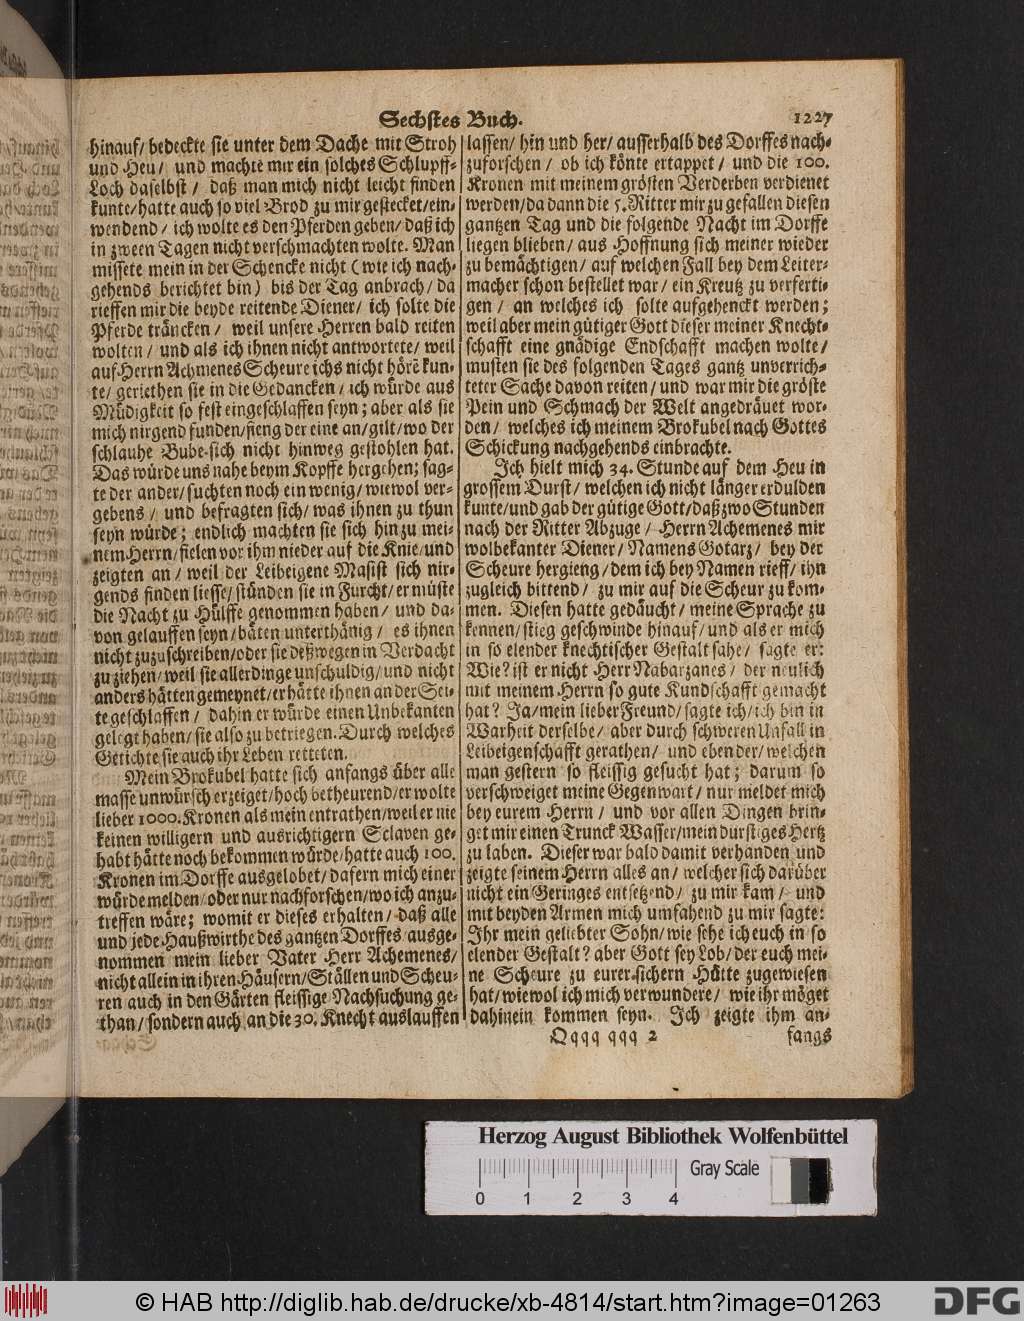 Sechstes Buch. 1227
hinauf/ bedeckte sie unter dem Dache mit Stroh
und Heu/ und machte mir ein solches Schlupff-
Loch daselbst/ daß man mich nicht leicht finden
kunte/hatte auch so viel Brod zu mir gestecket/ein-
wendend/ ich wolte es den Pferden geben/ daß ich
in zween Tagen nicht verschmachten wolte. Man
missete mein in der Schencke nicht (wie ich nach-
gehends berichtet bin) bis der Tag anbrach/ da
rieffen mir die beyde reitende Diener/ ich solte die
Pferde träncken/ weil unsere Herren bald reiten
wolten/ und als ich ihnen nicht antwortete/ weil
auf Herrn Achmenes Scheure ichs nicht hörē kun-
te/ geriethen sie in die Gedancken/ ich würde aus
Müdigkeit so fest eingeschlaffen seyn; aber als sie
mich nirgend funden/fieng der eine an/gilt/wo der
schlauhe Bube sich nicht hinweg gestohlen hat.
Das würde uns nahe beym Kopffe hergehen; sag-
te der ander/suchten noch ein wenig/wiewol ver-
gebens/ und befragten sich/ was ihnen zu thun
seyn würde; endlich machten sie sich hin zu mei-
nem Herrn/fielen vor ihm nieder auf die Knie/und
zeigten an/ weil der Leibeigene Masist sich nir-
gends finden liesse/stünden sie in Furcht/er müste
die Nacht zu Hülffe genommen haben/ und da-
von gelauffen seyn/bäten unterthänig/ es ihnen
nicht zuzuschreiben/oder sie deßwegen in Verdacht
zu ziehen/weil sie allerdinge unschuldig/und nicht
anders hätten gemeynet/er hätte ihnen an der Sei-
te geschlaffen/ dahin er würde einen Unbekanten
gelegt haben/sie also zu betriegen. Durch welches
Getichte sie auch ihr Leben retteten.
Mein Brokubel hatte sich anfangs über alle
masse unwürsch erzeiget/hoch betheurend/er wolte
lieber 1000. Kronen als mein entrathen/weil er nie
keinen willigern und ausrichtigern Sclaven ge-
habt hätte noch bekommen würde/hatte auch 100.
Kronen im Dorffe ausgelobet/dafern mich einer
würde melden/oder nur nachforschen/wo ich anzu-
treffen wäre; womit er dieses erhalten/ daß alle
und jede Haußwirthe des gantzen Dorffes ausge-
nommen mein lieber Vater Herr Achemenes/
nicht allein in ihren Häusern/Ställen und Scheu-
ren auch in den Gärten fleissige Nachsuchung ge-
than/sondern auch an die 30. Knecht auslauffen
lassen/ hin und her/ ausserhalb des Dorffes nach-
zuforschen/ ob ich könte ertappet/ und die 100.
Kronen mit meinem grösten Verderben verdienet
werden/da dann die 5. Ritter mir zu gefallen diesen
gantzen Tag und die folgende Nacht im Dorffe
liegen blieben/ aus Hoffnung sich meiner wieder
zu bemächtigen/ auf welchen Fall bey dem Leiter-
macher schon bestellet war/ ein Kreutz zu verferti-
gen/ an welches ich solte aufgehenckt werden;
weil aber mein gütiger Gott dieser meiner Knecht-
schafft eine gnädige Endschafft machen wolte/
musten sie des folgenden Tages gantz unverrich-
teter Sache davon reiten/und war mir die gröste
Pein und Schmach der Welt angedräuet wor-
den/ welches ich meinem Brokubel nach Gottes
Schickung nachgehends einbrachte.
Ich hielt mich 34. Stunde auf dem Heu in
grossem Durst/welchen ich nicht länger erdulden
kunte/und gab der gütige Gott/daß zwo Stunden
nach der Ritter Abzuge/ Herrn Achemenes mir
wolbekanter Diener/ Namens Gotarz/ bey der
Scheure hergieng/dem ich bey Namen rieff/ ihn
zugleich bittend/ zu mir auf die Scheur zu kom-
men. Diesen hatte gedäucht/meine Sprache zu
kennen/stieg geschwinde hinauf/und als er mich
in so elender knechtischer Gestalt sahe/ sagte er:
Wie? ist er nicht Herr Nabarzanes/ der neulich
mit meinem Herrn so gute Kundschafft gemacht
hat? Ja/mein lieber Freund/sagte ich/ich bin in
Warheit derselbe/aber durch schweren Unfall in
Leibeigenschafft gerathen/ und eben der/welchen
man gestern so fleissig gesucht hat; darum so
verschweiget meine Gegenwart/nur meldet mich
bey eurem Herrn/ und vor allen Dingen brin-
get mir einen Trunck Wasser/mein durstiges Hertz
zu laben. Dieser war bald damit verhanden und
zeigte seinem Herrn alles an/welcher sich darüber
nicht ein Geringes entsetzend/ zu mir kam/ und
mit beyden Armen mich umfahend zu mir sagte:
Ihr mein geliebter Sohn/wie sehe ich euch in so
elender Gestalt? aber Gott sey Lob/der euch mei-
ne Scheure zu eurer sichern Hütte zugewiesen
hat/wiewol ich mich verwundere/ wie ihr möget
dahinein kommen seyn. Ich zeigte ihm an-
Qqqq qqq 2 fangs
Herzog August Bibliothek Wolfenbüttel
Gray Scale
0 1 2 3 4
© HAB http://diglib.hab.de/drucke/xb-4814/start.htm?image=01263
DFG